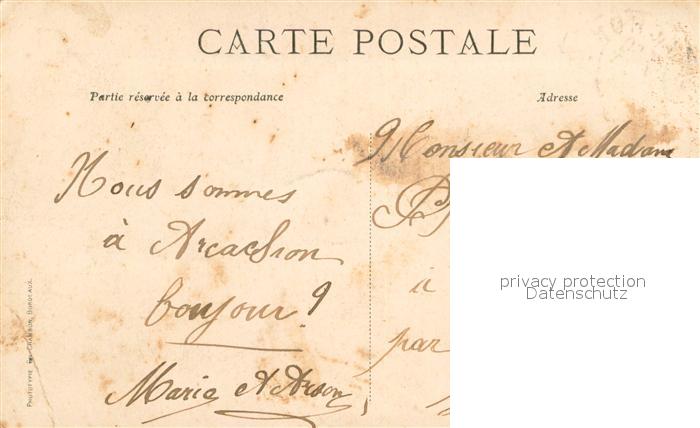 CARTE POSTALE
Partie réservée à la correspondance
Adresse
Nous sommes
à Arcachon
bonjour !
Maria
Monsieur
à
par
privacy protection
Datenschutz
PHOTOTYPIE CHAMBON, BORDEAUX.